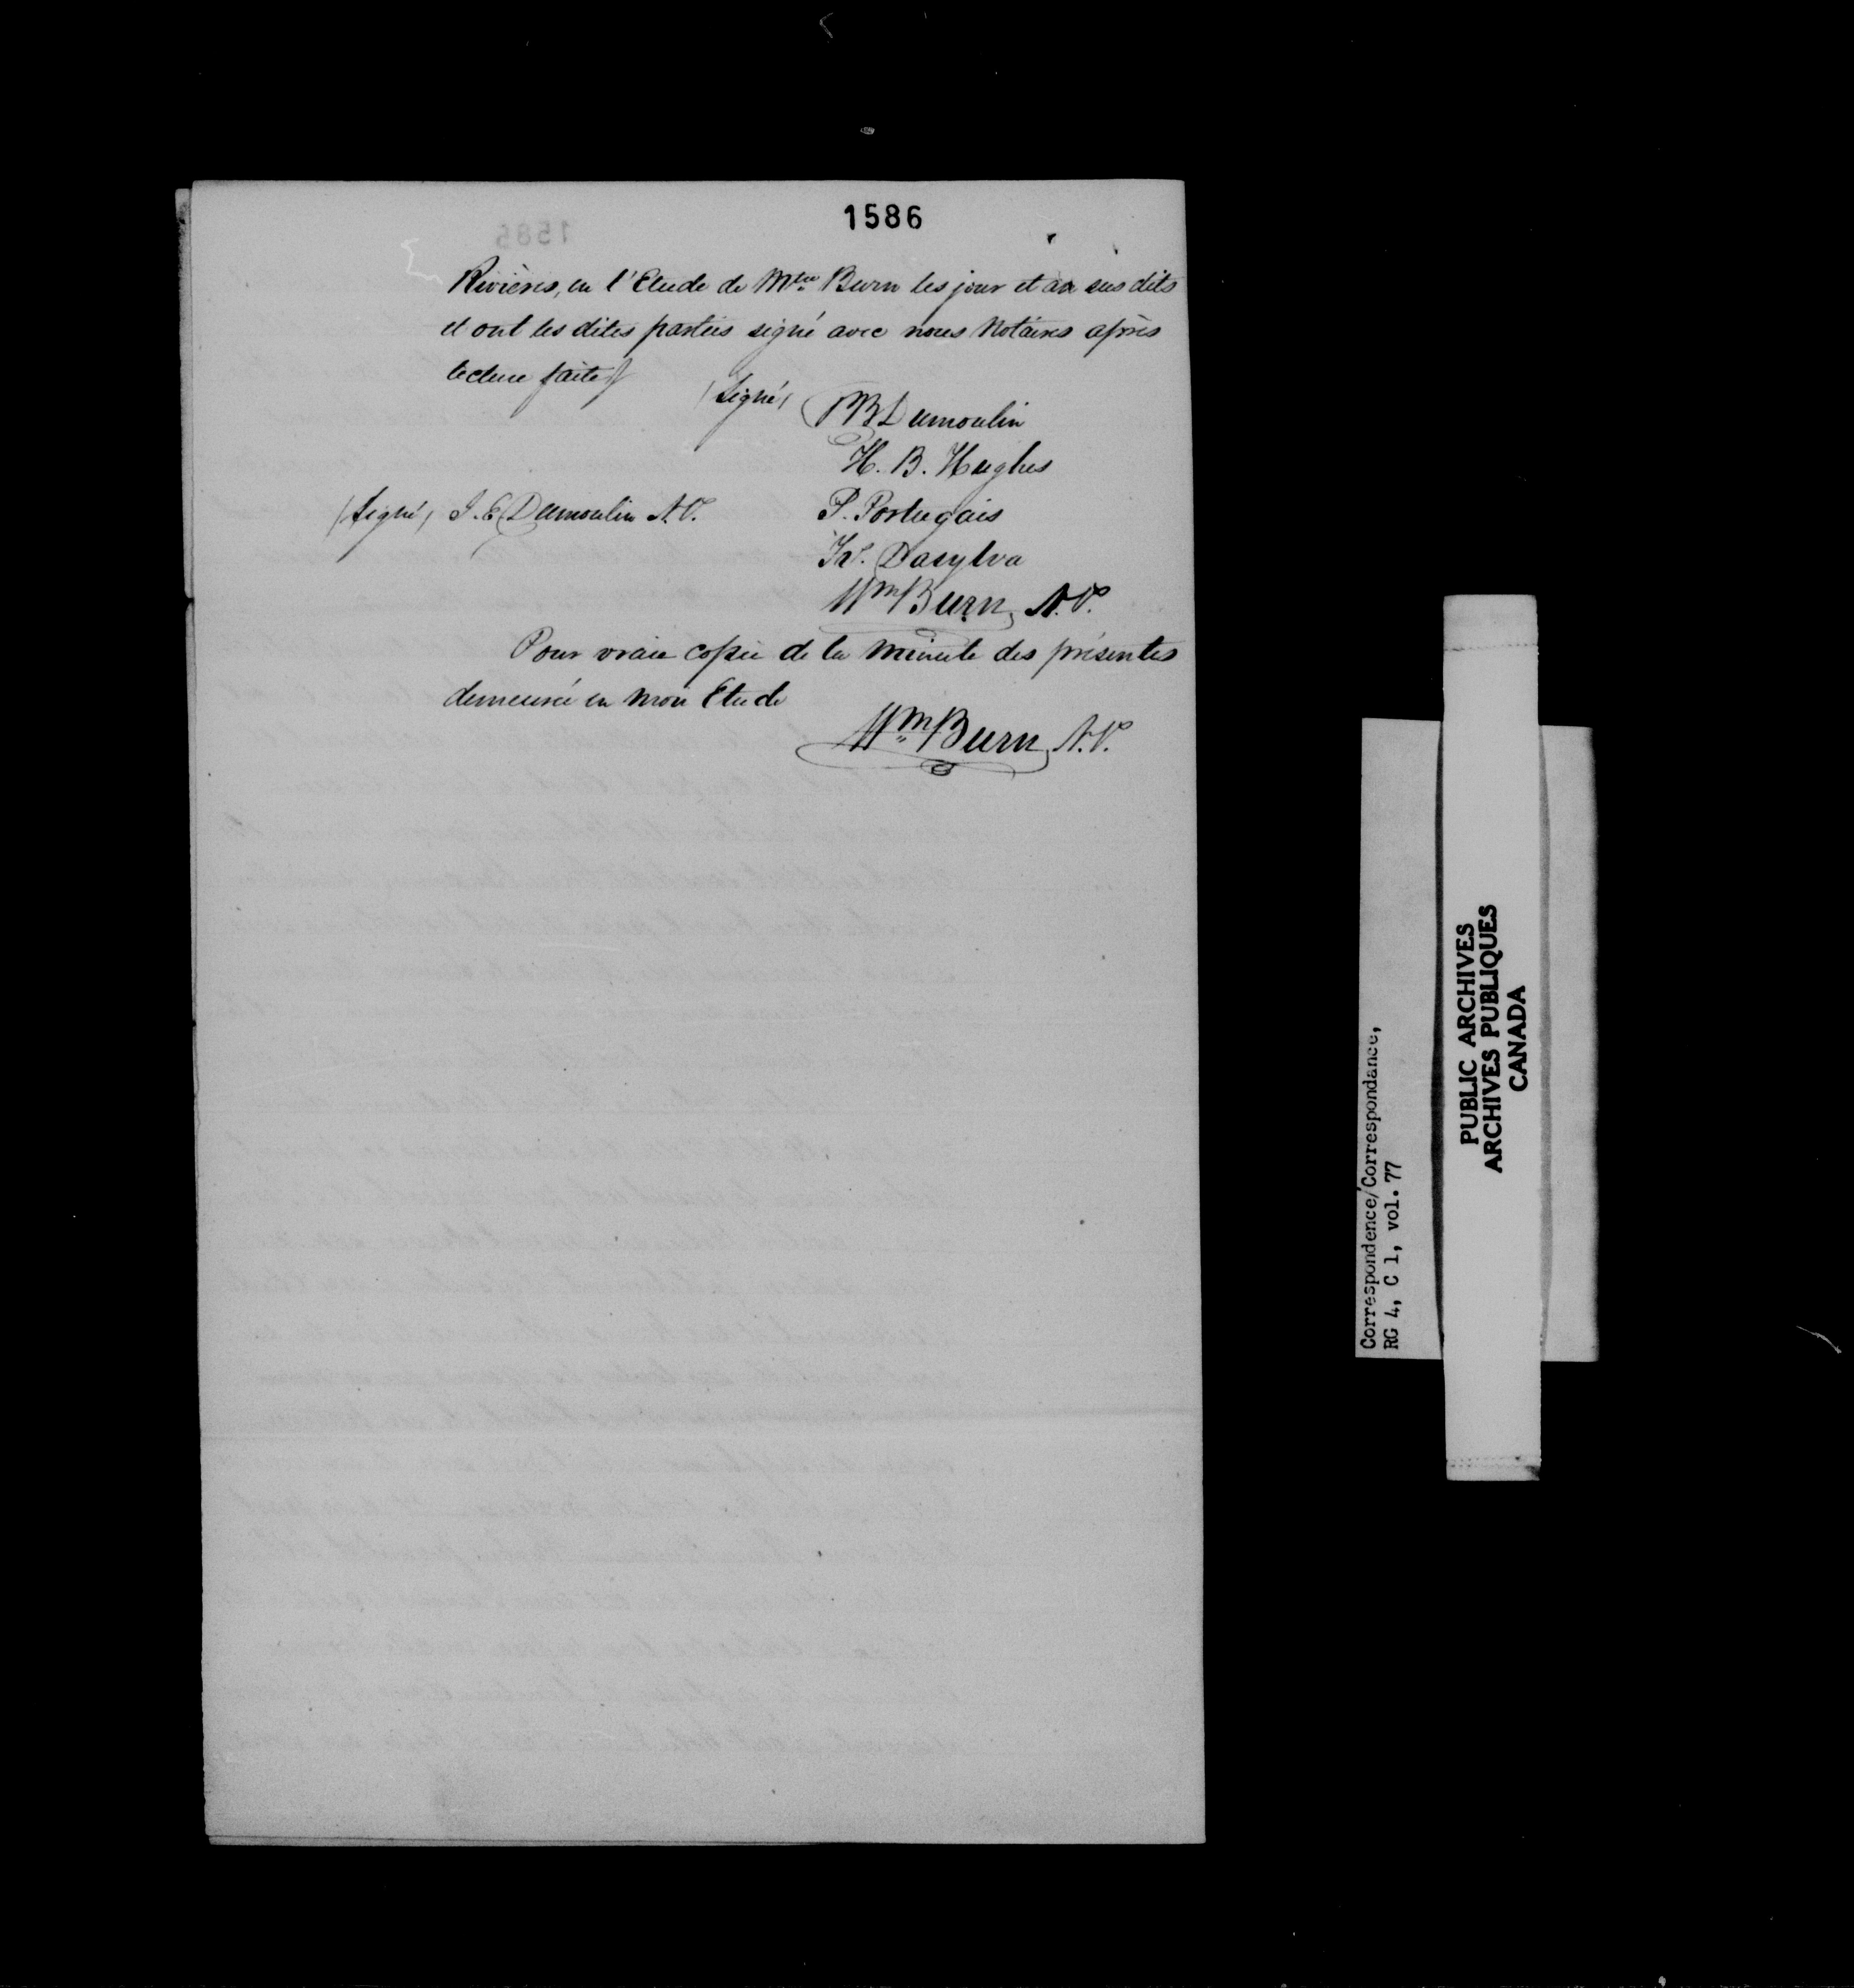 1586
Rivières, en l'Etude de Mtre Burn les jour et an sus dits
et ont les dites parties signé avec nous Notaires après
lecture faite
(Signé) PB Dumoulin
H. B. Hughes
(Signé) J. E. Dumoulin N.P. P. Portugais
Dasylva
Wm Burn, N.P.
Pour vraie copie de la minute des présentes
demeurée en mon Etude
Wm Burn, N.P.
Correspondence/Correspondance,
RG 4, C 1, vol. 77
PUBLIC ARCHIVES
ARCHIVES PUBLIQUES
CANADA